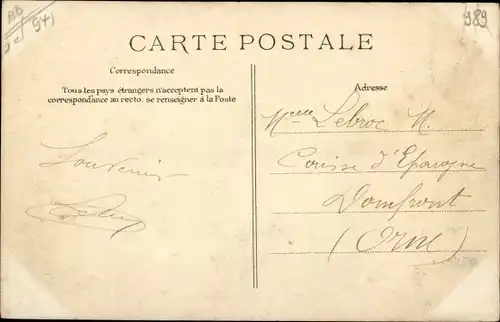 989
CARTE POSTALE
Correspondance
Tous les pays étrangers n'acceptent pas la
correspondance au recto. se renseigner à la Poste
Adresse
Souvenir
Melle Lebroc M.
Caisse d'Epargne
Domfront
(Orne)